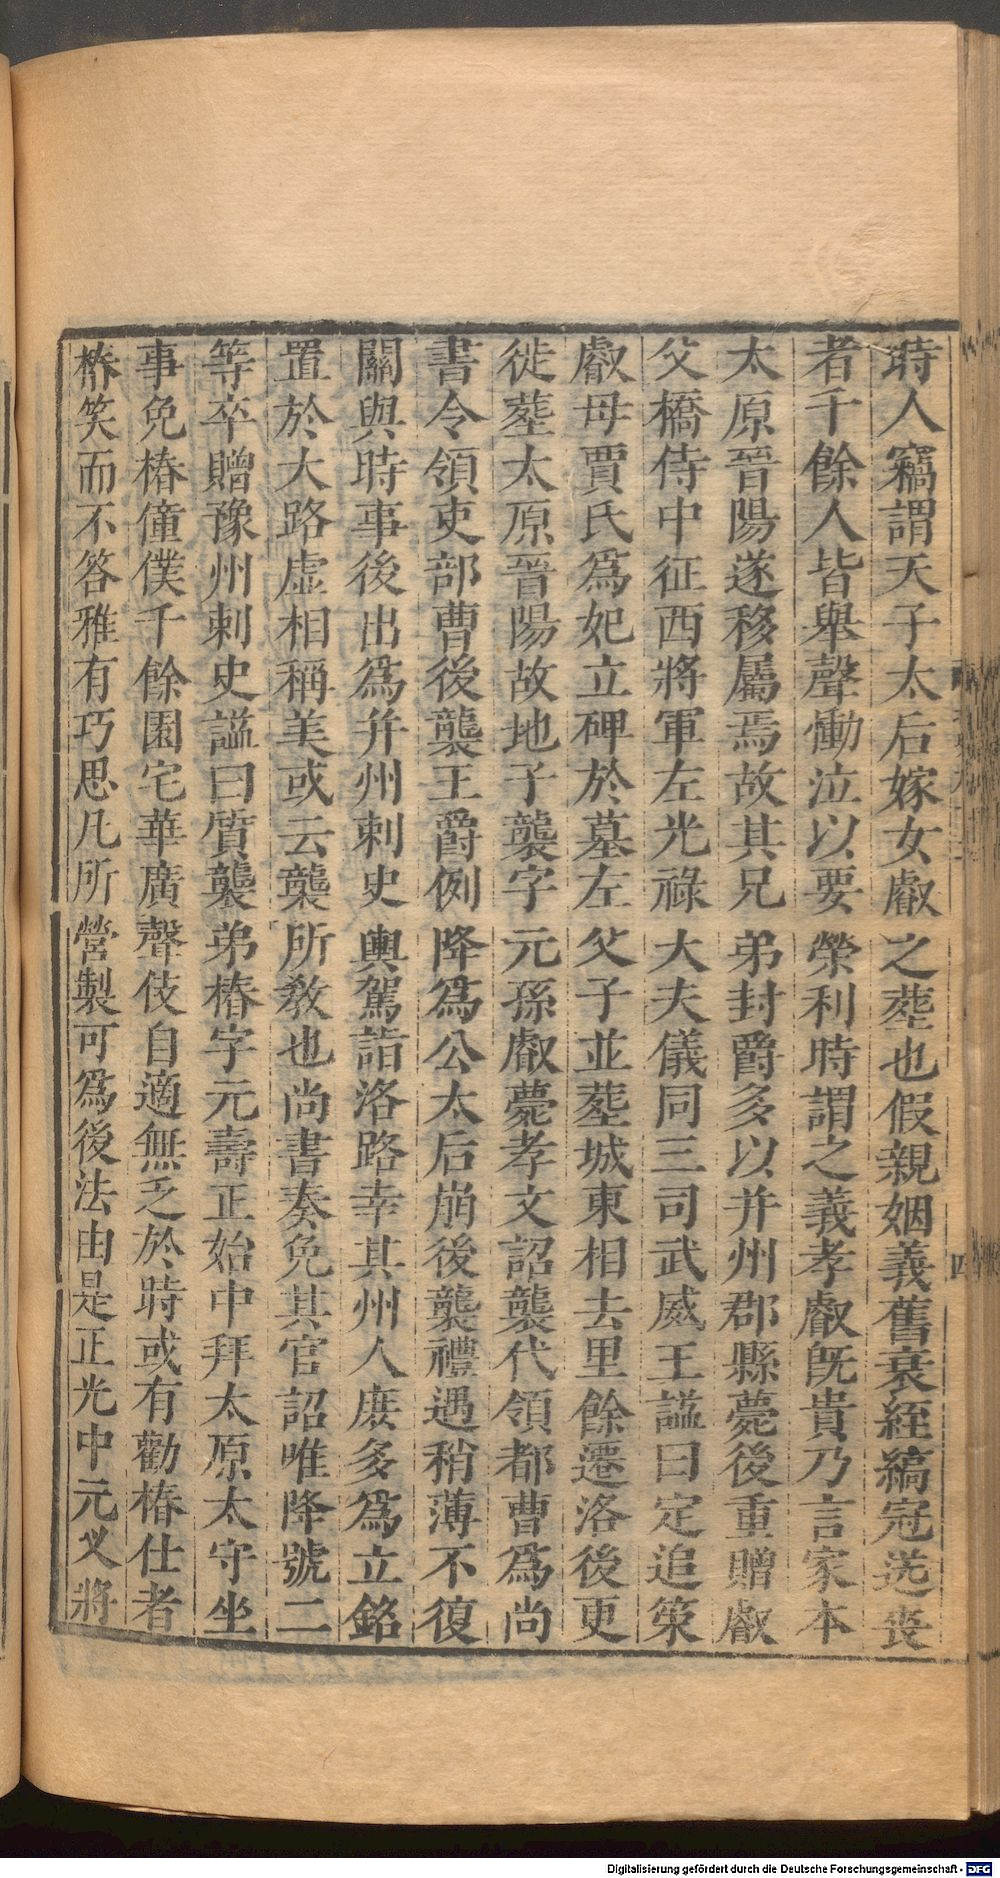 時人竊謂天子太后嫁女叡之葬也假親姻義舊衰絰縞冠送喪
者千餘人皆舉聲慟泣以要榮利時謂之義孝叡旣貴乃言家本
太原晉陽遂移屬焉故其兄弟封爵多以并州郡縣薨後重贈叡
父橋侍中征西將軍左光祿大夫儀同三司武威王謚曰定追策
叡母賈氏爲妃立碑於墓左父子並葬城東相去里餘遷洛後更
徙葬太原晉陽故地子襲字元孫叡薨孝文詔襲代領都曹爲尚
書令領吏部曹後襲王爵例降爲公太后崩後襲禮遇稍薄不復
關與時事後出爲并州刺史輿駕詣洛路幸其州人庶多爲立銘
置於大路虛相稱美或云襲所敎也尚書奏免其官詔唯降號二
等卒贈豫州刺史謚曰質襲弟椿字元壽正始中拜太原太守坐
事免椿僮僕千餘園宅華廣聲伎自適無乏於時或有勸椿仕者
椿笑而不答雅有巧思凡所營製可爲後法由是正光中元叉將
四
Digitalisierung gefördert durch die Deutsche Forschungsgemeinschaft - DFG